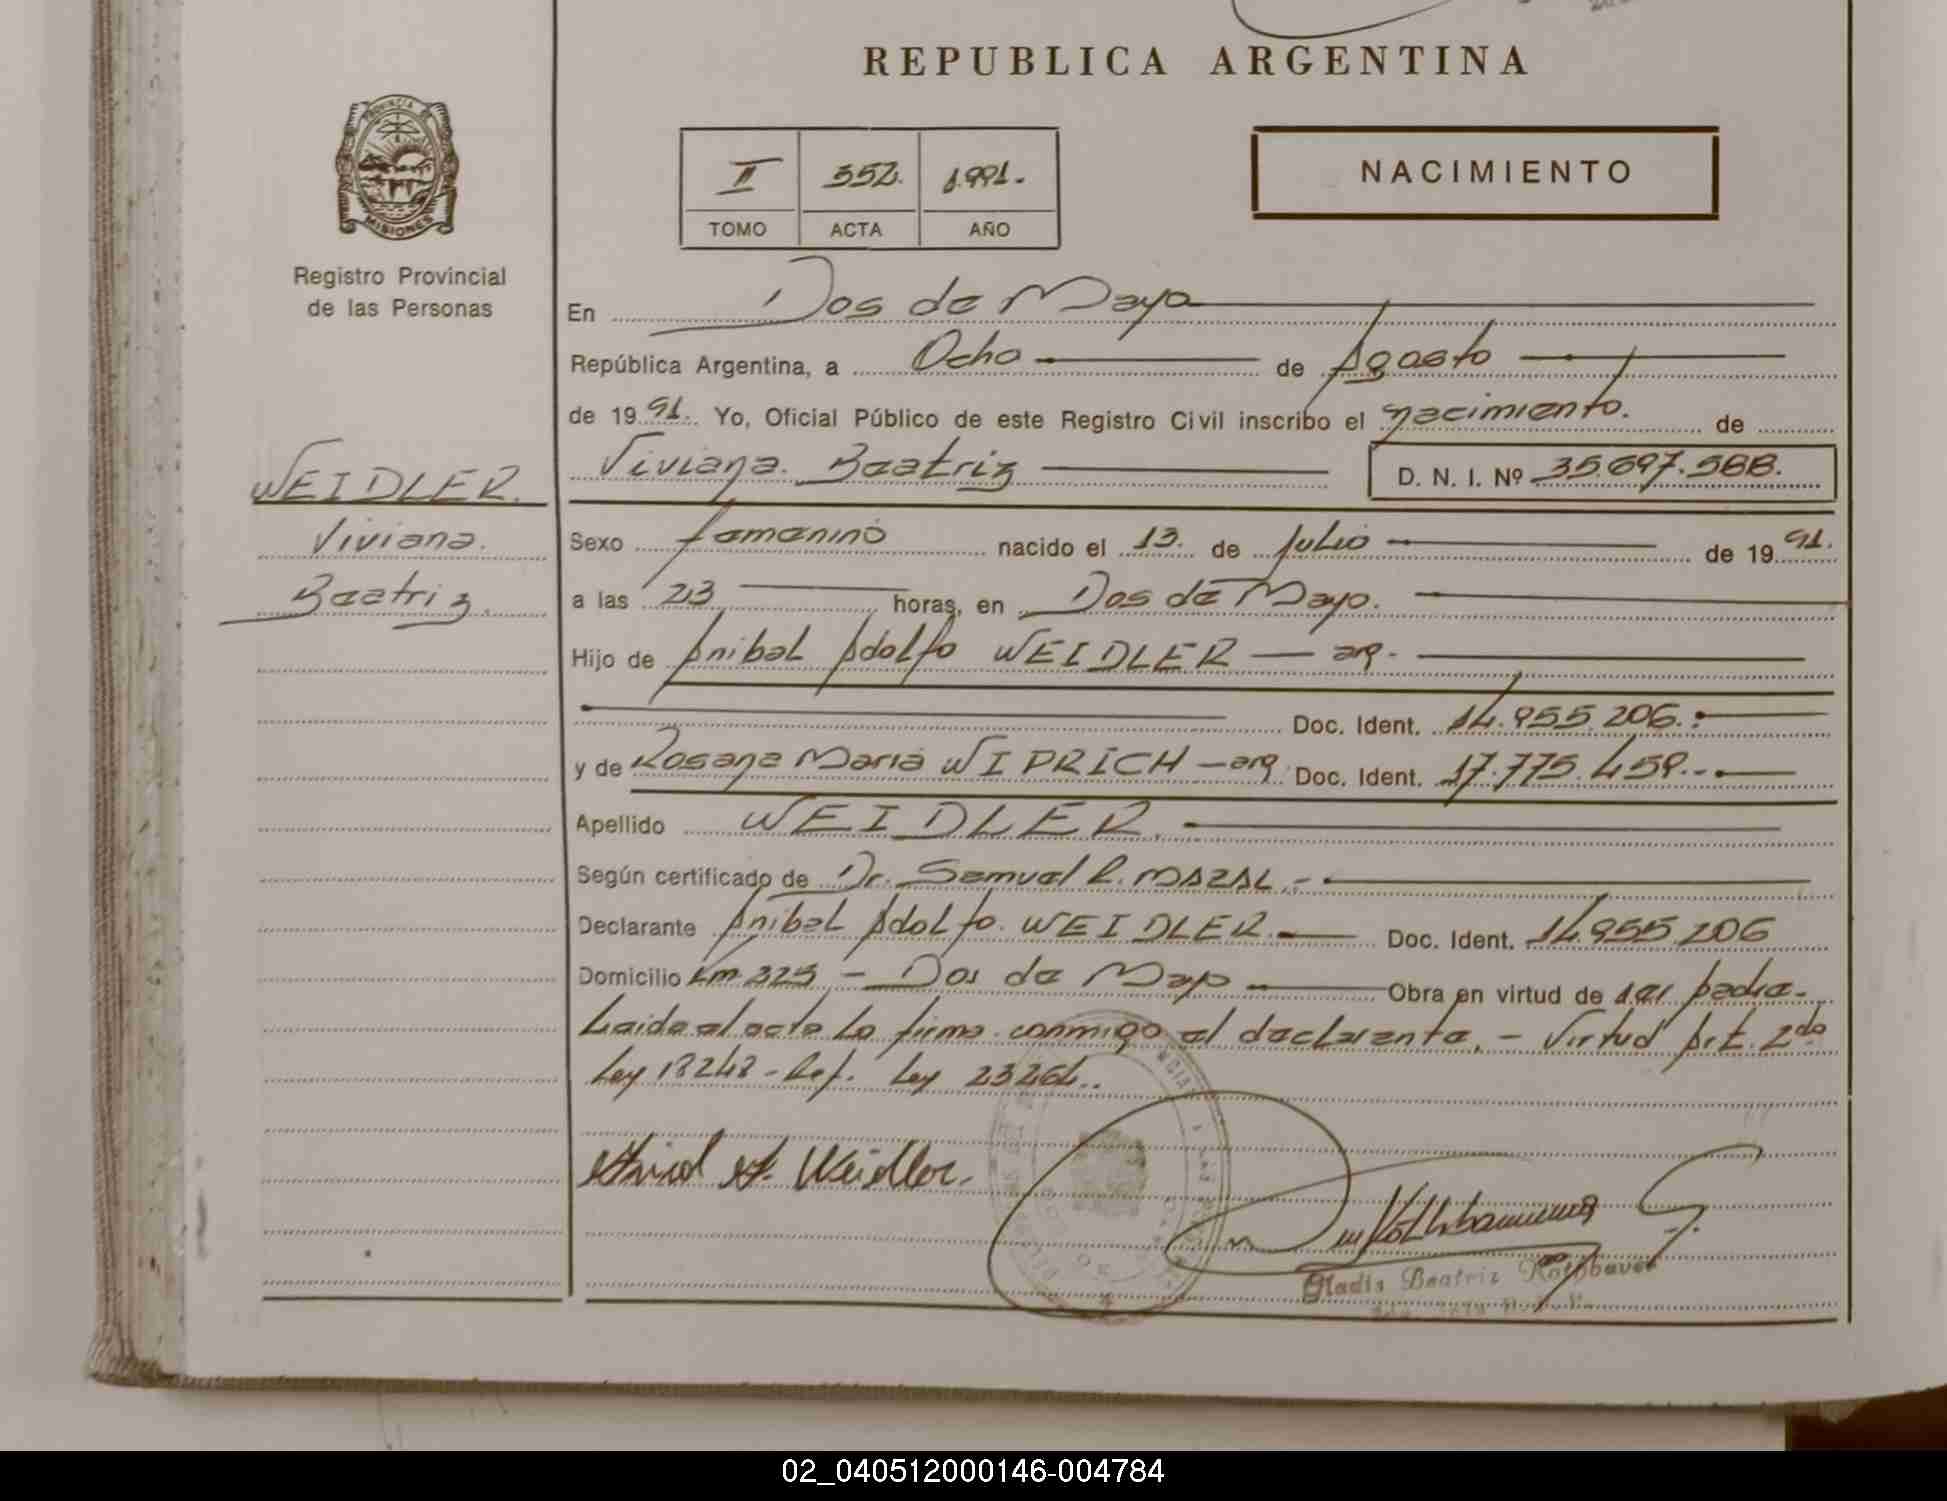 REPUBLICA ARGENTINA
PROVINCIA DE
MISIONES
Registro Provincial
de las Personas
II 352. 1.991.-
TOMO ACTA AÑO
NACIMIENTO
En Dos de Mayo
República Argentina, a Ocho de Agosto
de 1991. Yo, Oficial Público de este Registro Civil inscribo el nacimiento. de
Viviana. Beatriz D. N. I. Nº 35697.588.
WEIDLER.
Viviana.
Beatriz.
Sexo femenino nacido el 13. de Julio de 1991.
a las 23 horas, en Dos de Mayo.
Hijo de Anibal Adolfo WEIDLER — arg.-
Doc. Ident. 14.955.206.-
y de Rosana Maria WIPRICH — arg. Doc. Ident. 17.775.459.-
Apellido WEIDLER.
Según certificado de Dr. Samuel R. MAZAL.-
Declarante Anibal Adolfo. WEIDLER.- Doc. Ident. 14955206
Domicilio Km 323 - Dos de Mayo Obra en virtud de ser padre.-
Leida el acta la firma conmigo el declarante.- Virtud Art. 2do
Ley 18248-Ref. Ley 23264.
A. Weidler.
Gladis Beatriz
02_040512000146-004784